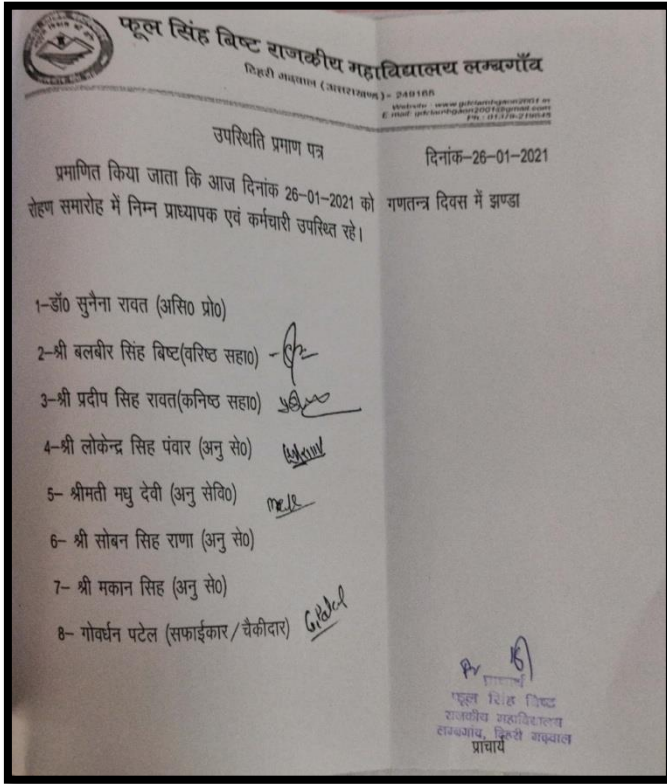 फूल सिंह बिष्ट राजकीय महाविद्यालय लम्बगाँव
टिहरी गढ़वाल (उत्तराखण्ड)- 249165
Website : www.gdclambgaon2001.in
E mail: gdclambgaon2001@gmail.com
Ph : 01379-219045
उपस्थिति प्रमाण पत्र
दिनांक-26-01-2021
प्रमाणित किया जाता कि आज दिनांक 26-01-2021 को गणतन्त्र दिवस में झण्डा
रोहण समारोह में निम्न प्राध्यापक एवं कर्मचारी उपस्थित रहे।
1-डॉ0 सुनैना रावत (असि0 प्रो0)
2-श्री बलबीर सिंह बिष्ट(वरिष्ठ सहा0) -
3-श्री प्रदीप सिह रावत(कनिष्ठ सहा0)
4-श्री लोकेन्द्र सिह पंवार (अनु से0)
5- श्रीमती मधु देवी (अनु सेवि0)
6- श्री सोबन सिह राणा (अनु से0)
7- श्री मकान सिह (अनु से0)
8- गोवर्धन पटेल (सफाईकार/चैकीदार) G.Patel
प्राचार्य
फूल सिंह बिष्ट
राजकीय महाविद्यालय
लम्बगांव, टिहरी गढ़वाल
प्राचार्य